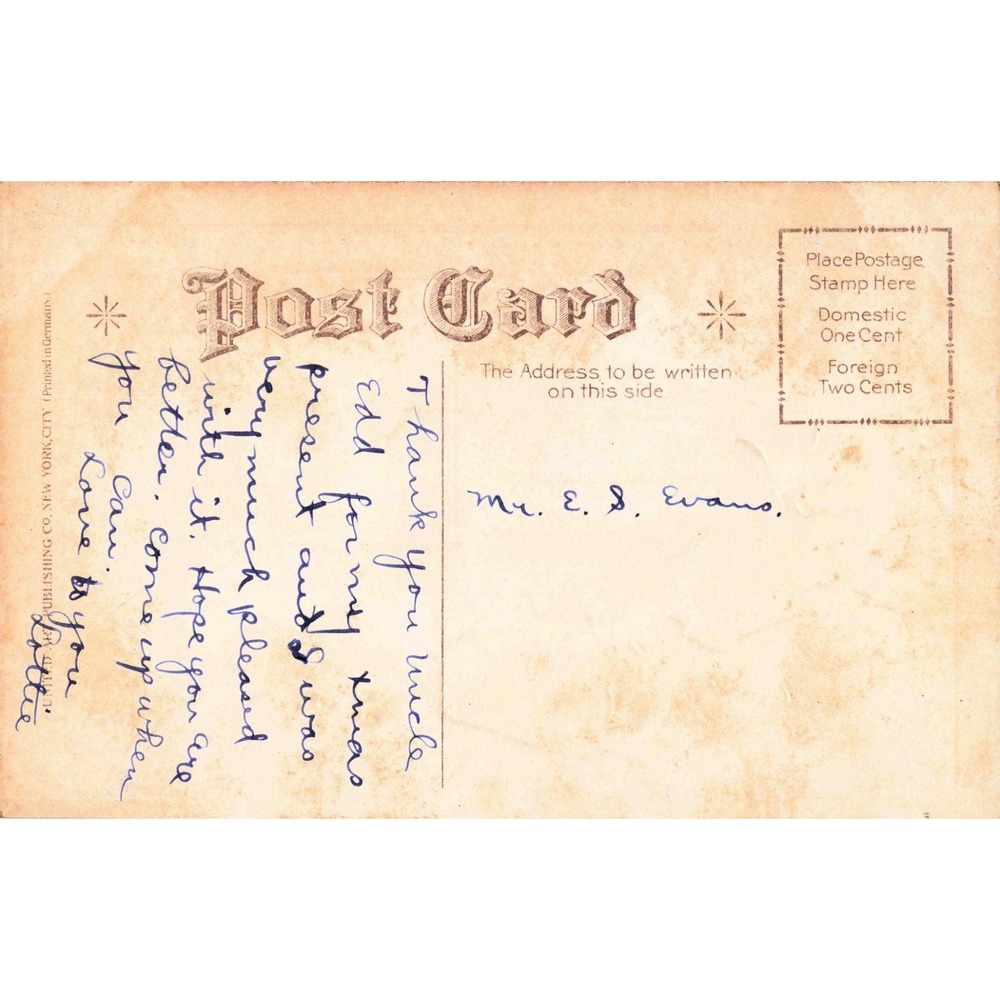 Post Card
Place Postage
Stamp Here
Domestic
One Cent
Foreign
Two Cents
The Address to be written
on this side
Mr. E. S. Evans.
Thank you Uncle
Edd for my xmas
present and I was
very much pleased
with it. Hope you are
better. Come up when
you can.
Love to you
Lottie
UNITED ART PUBLISHING CO. NEW YORK, CITY (Printed in Germany)